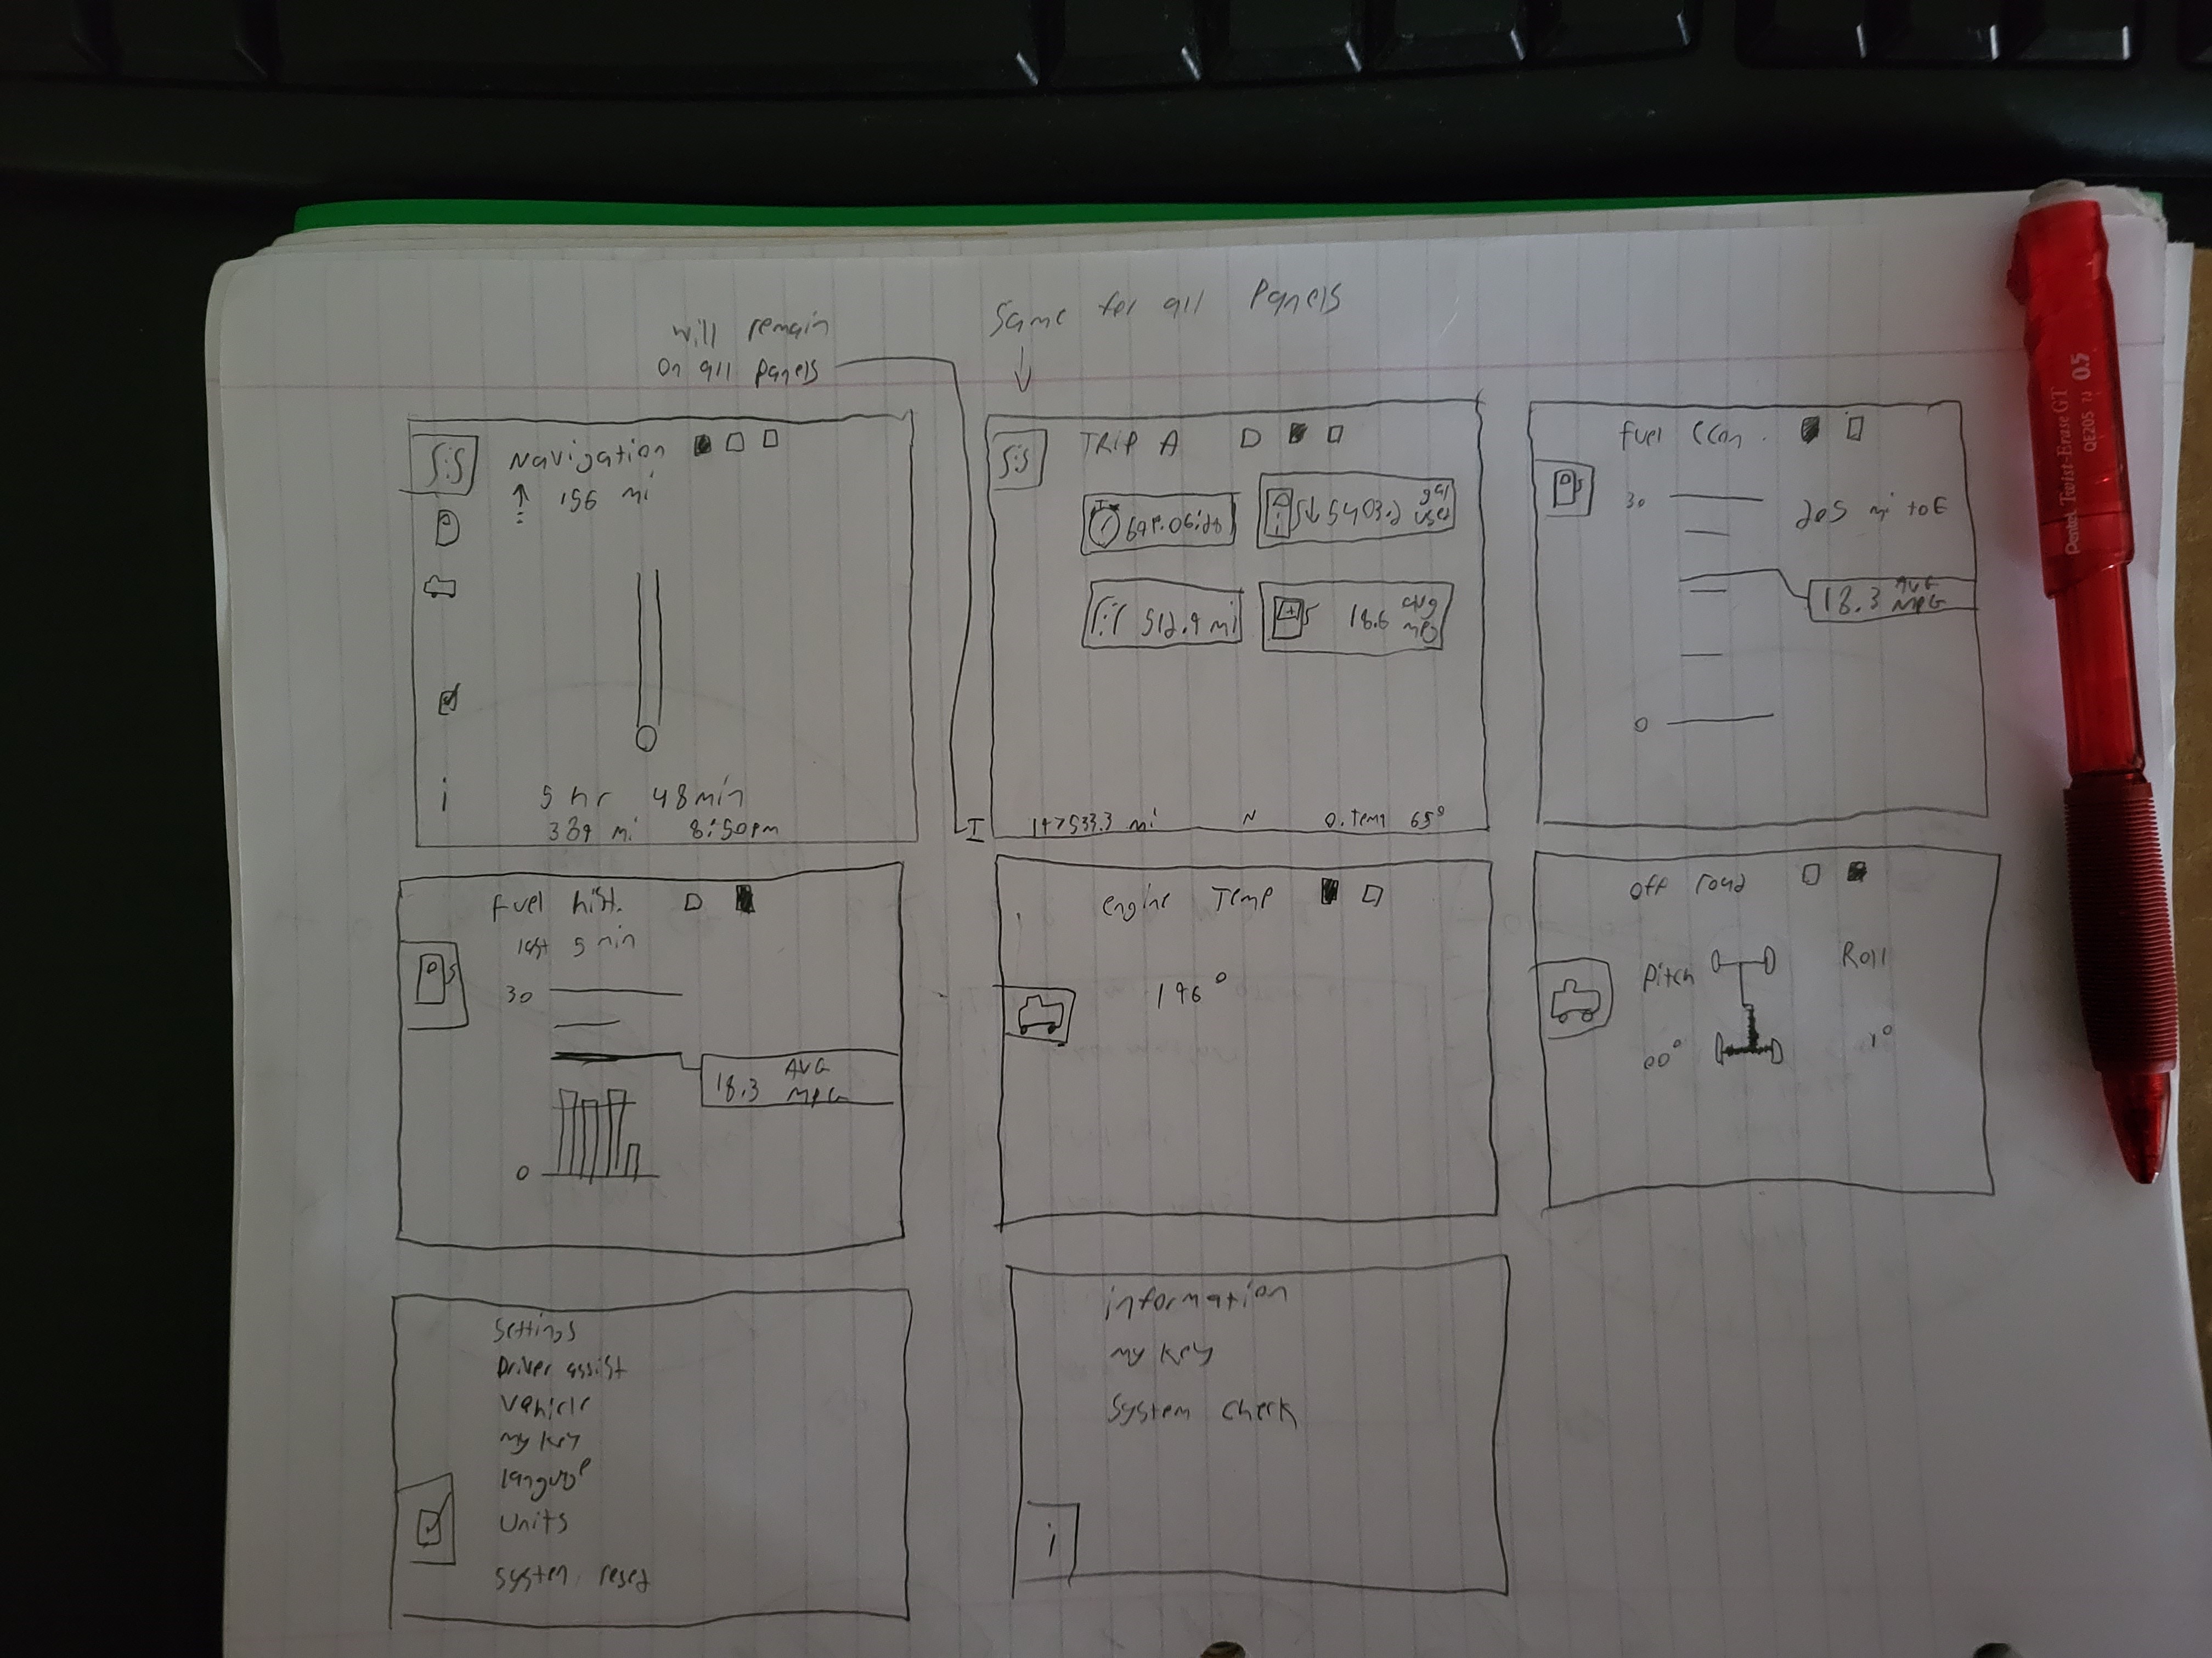 will remain
on all panels
Same for all Panels
Navigation
156 mi
5 hr 48min
389 mi 8:50pm
i
TRIP A
gal
used
512.9 mi
18.6 avg
mpg
147533.3 mi N O.temp 65°
fuel Econ.
30
205 mi toE
18.3 AVG
MPG
0
fuel hist.
last 5 min
30
18.3 AVG
MPG
0
engine Temp
196°
off road
Pitch Roll
00° 1°
Settings
Driver assist
Vehicle
my key
Units
system reset
information
my key
system check
i
Pentel Twist-Erase GT 0.5
QE205